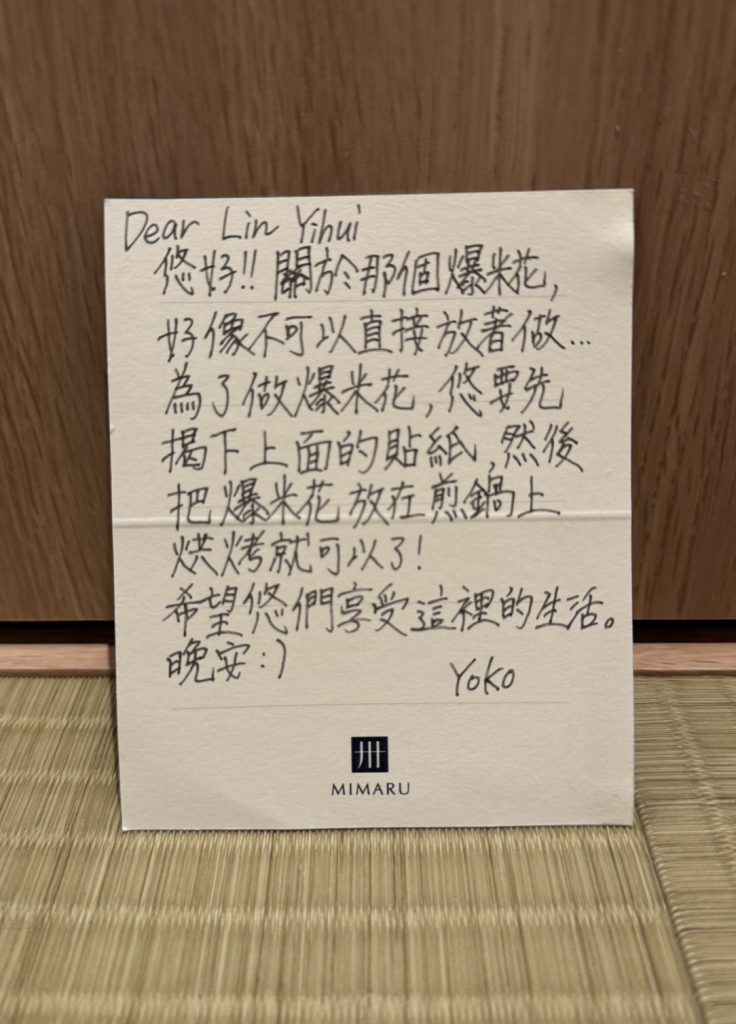 Dear Lin Yihui
悠好!! 關於那個爆米花,
好像不可以直接放著做...
為了做爆米花,悠要先
揭下上面的貼紙,然後
把爆米花放在煎鍋上
烘烤就可以了!
希望悠們享受這裡的生活。
晚安:)
Yoko
MIMARU